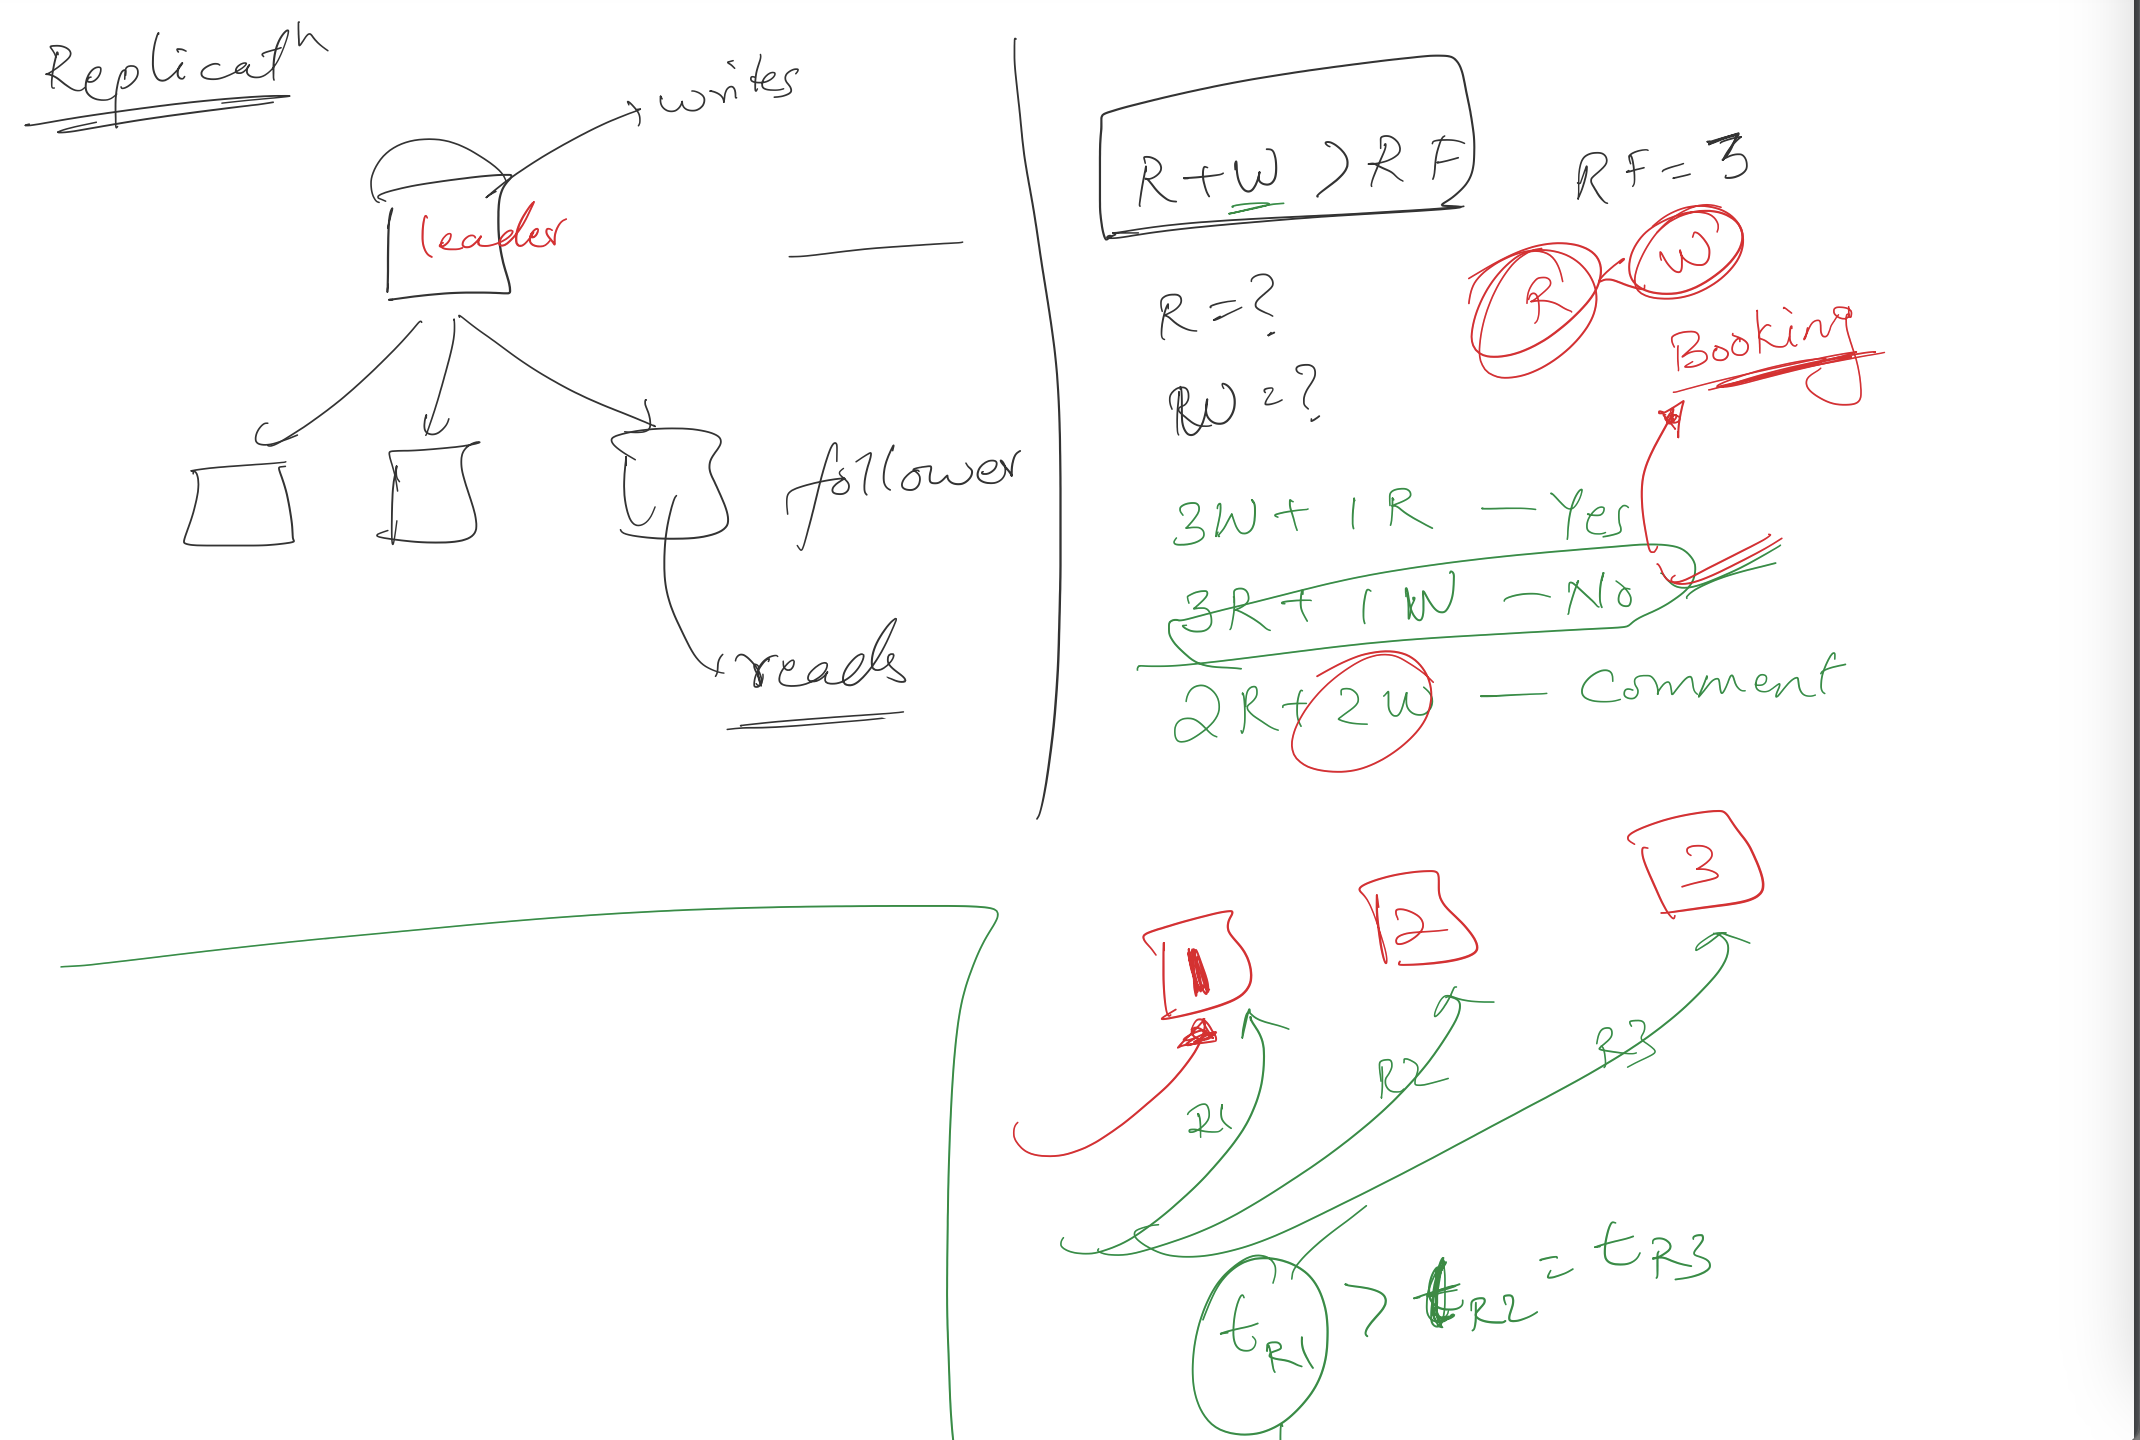 Replicatn
writes
leader
follower
reads
R+W > RF
RF = 3
R
W
R = ?
W = ?
Booking
3W + 1R — Yes
3R + 1W — No
2R + 2W — Comment
1
2
3
R1
R2
R3
tR1 > tR2 = tR3